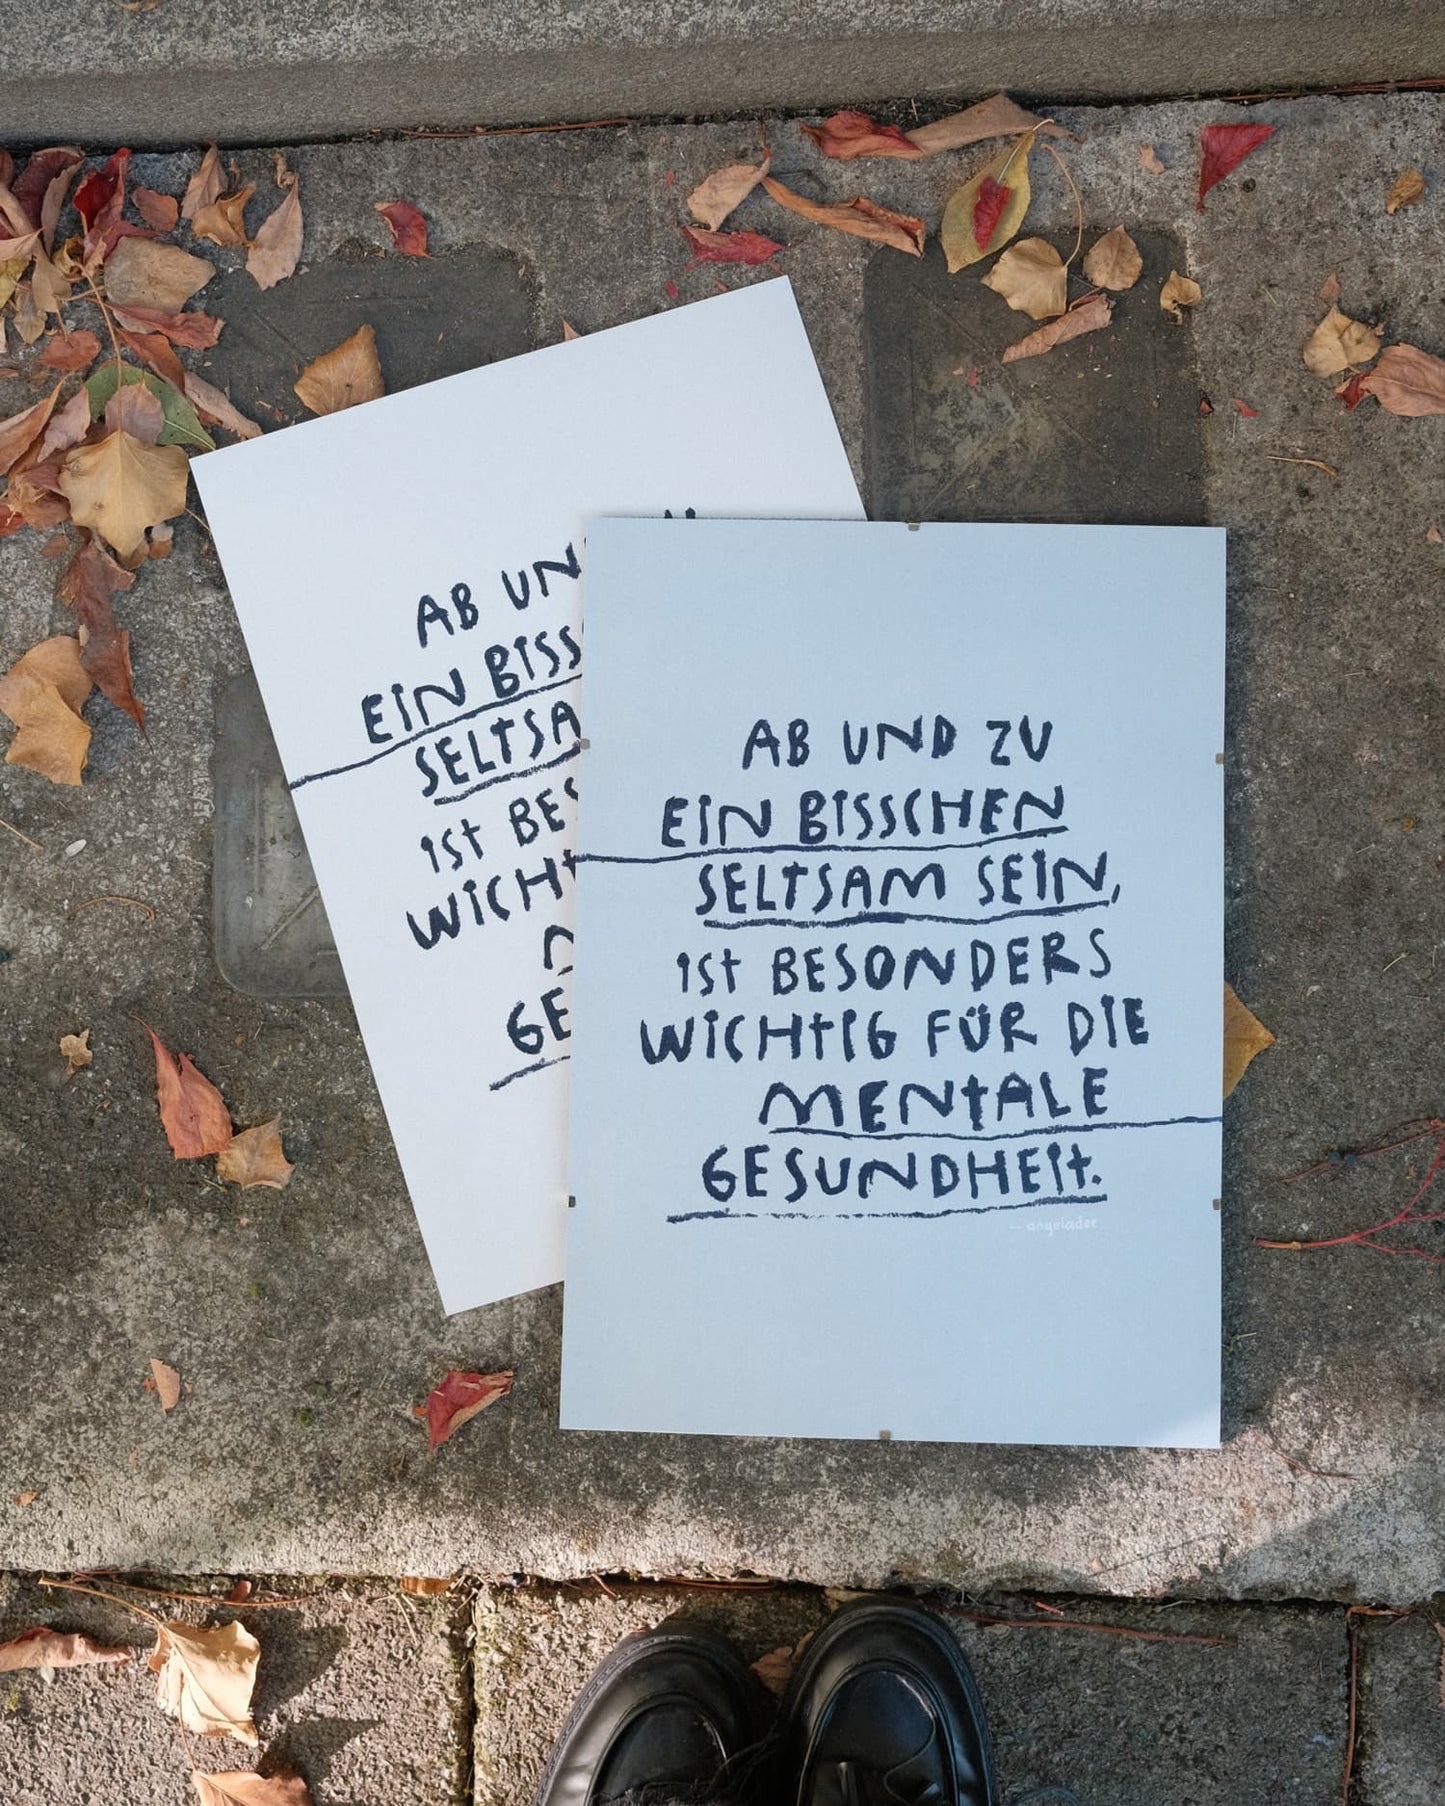 AB UN
EIN BISS
SELTSA
IST BES
WICHT
GE
AB UND ZU
EIN BISSCHEN
SELTSAM SEIN,
IST BESONDERS
WICHTIG FÜR DIE
MENTALE
GESUNDHEIT.
— angeladoe